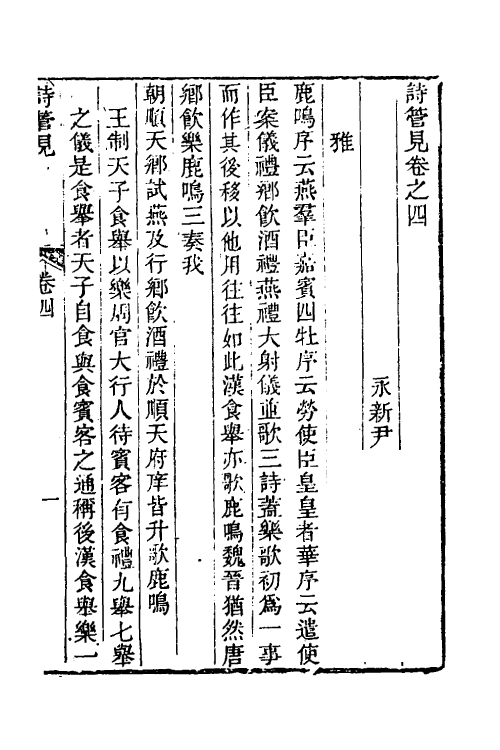 詩管見卷之四
永新尹
雅
鹿鳴序云燕羣臣嘉賓四牡序云勞使臣皇皇者華序云遣使
臣案儀禮鄉飲酒禮燕禮大射儀並歌三詩蓋樂歌初爲一事
而作其後移以他用往往如此漢食舉亦歌鹿鳴魏晉猶然唐
鄉飲樂鹿鳴三奏我
朝順天鄉試燕及行鄉飲酒禮於順天府庠皆升歌鹿鳴
王制天子食舉以樂周官大行人待賓客有食禮九舉七舉
之儀是食舉者天子自食與食賓客之通稱後漢食舉樂一
詩管見
卷四
一